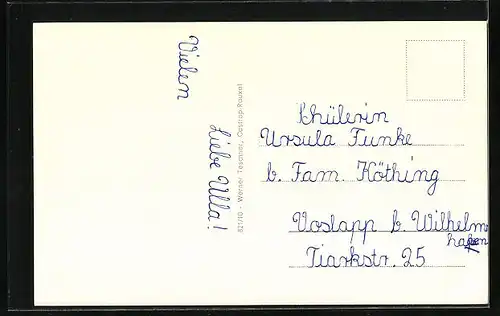 Liebe Ulla!
Vielen
821/10 - Werner Teschner, Castrop-Rauxel
Schülerin
Ursula Funke
b. Fam. Köthing
Voslapp b. Wilhelms
hafen
Tiarkstr. 25